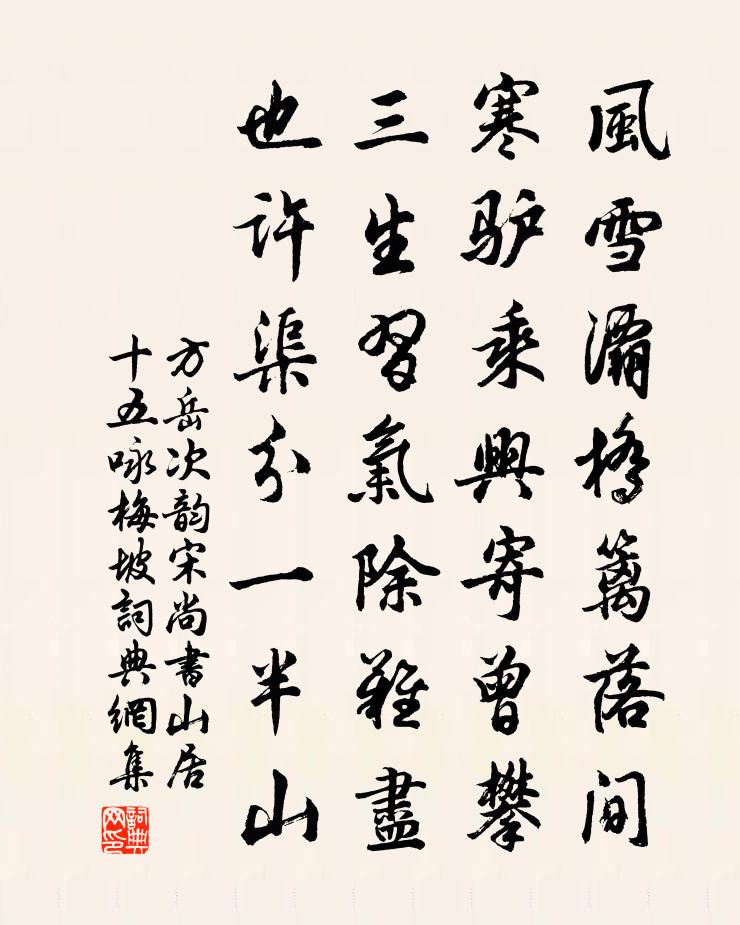 風雪灞橋篱落间
寒驴乘興寄曾攀
三生習氣除難盡
也许渠分一半山
方岳次韵宋尚書山居
十五咏梅坡詞典網集
詞典网印